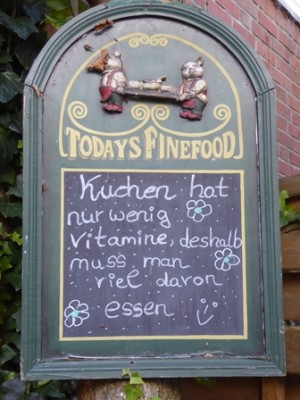 TODAYS FINEFOOD
Kuchen hat
nur wenig
vitamine, deshalb
muss man
viel davon
essen